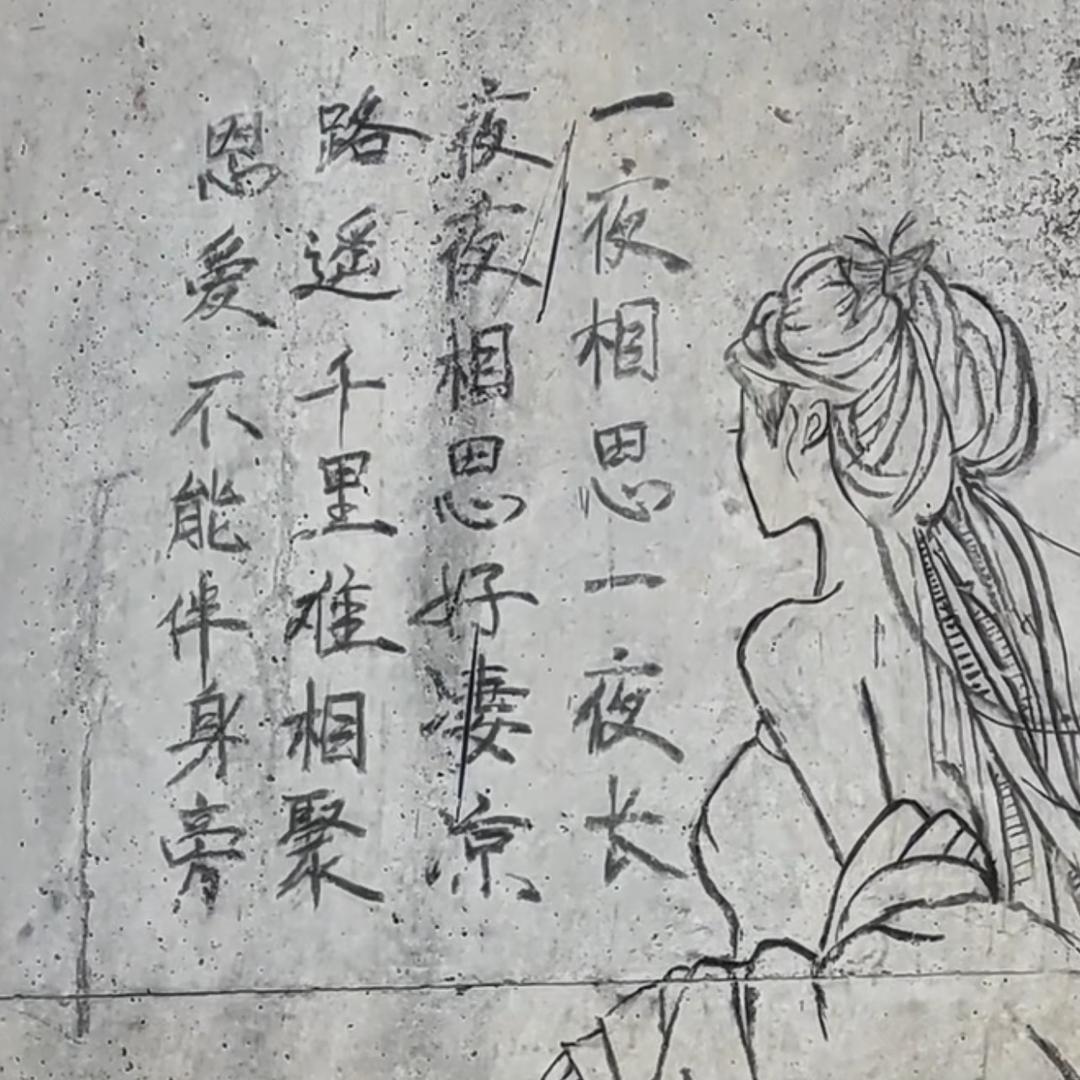 一夜相思一夜长
夜夜相思好凄凉
路遥千里难相聚
恩爱不能伴身旁